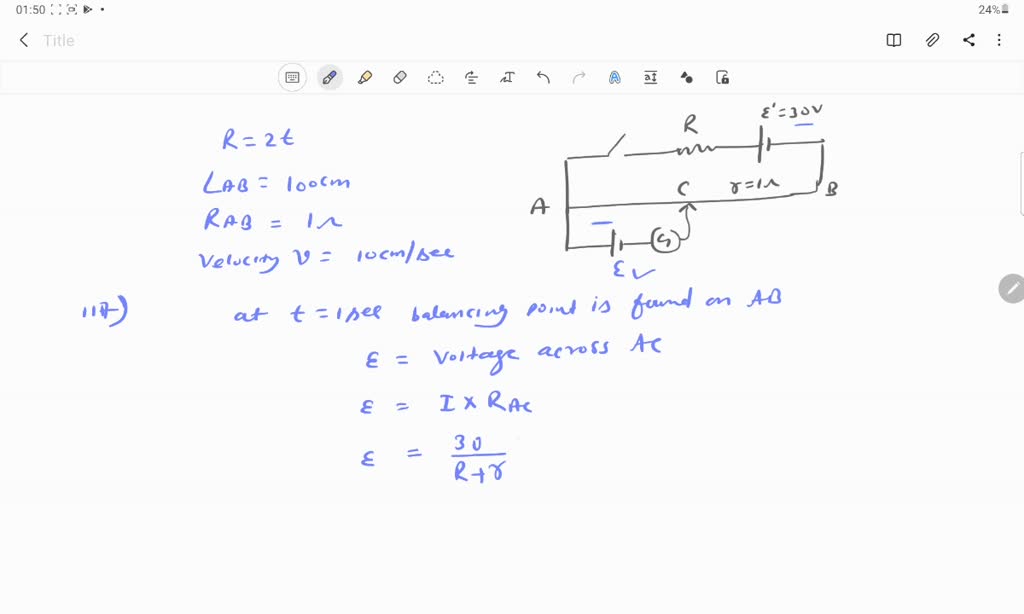 01:50
24%
Title
R = 2t
LAB = 100cm
RAB = 1Ω
Velocity v = 10cm/sec
R
ε' = 30V
A
C
r = 1Ω
B
G
ε
at t = 1sec balancing point is found on AB
ε = Voltage across AC
ε = I × RAC
ε = 30
R+r